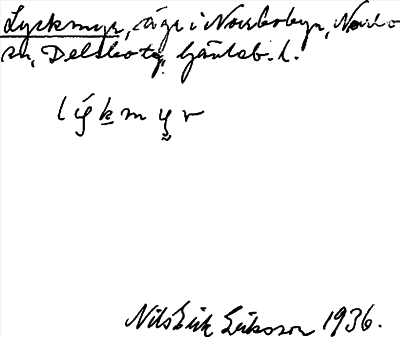 Lyckmyr, äga i Norrbobyn, Norrbo
sn, Delsbo tg. Gävleb. l.
lýkmyr
Nils Erik Eriksson 1936.